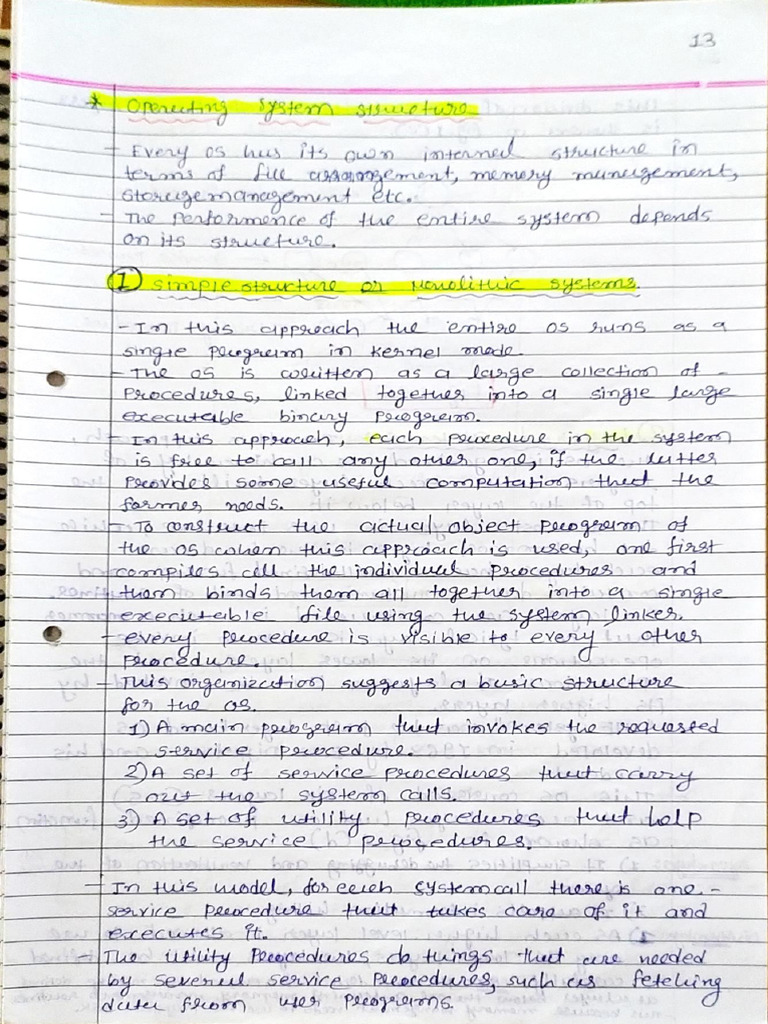 13
* Operating System Structure
- Every OS has its own internal structure in
terms of file arrangement, memory management,
storage management etc.
- The Performence of the entire system depends
on its structure.
① Simple structure or Monolithic Systems.
- In this approach the entire OS runs as a
single program in kernel mode.
- The OS is written as a large collection of -
Procedures, linked together into a single large
executable binary program.
- In this approach, each procedure in the system
is free to call any other one, if the latter
provides some useful computation that the
former needs.
- To construct the actual object program of
the OS when this approach is used, one first
compiles all the individual procedures and
them binds them all together into a single
executable file using the system linker.
- every procedure is visible to every other
procedure.
- This organization suggests a basic structure
for the OS.
1) A main program that invokes the requested
service procedure.
2) A set of service procedures that carry
out the system calls.
3) A set of utility procedures that help
the service procedures.
- In this model, for each system call there is one -
service procedure that takes care of it and
executes it.
- The utility Procedures do things that are needed
by several service Procedures, such as fetching
data from user programs.